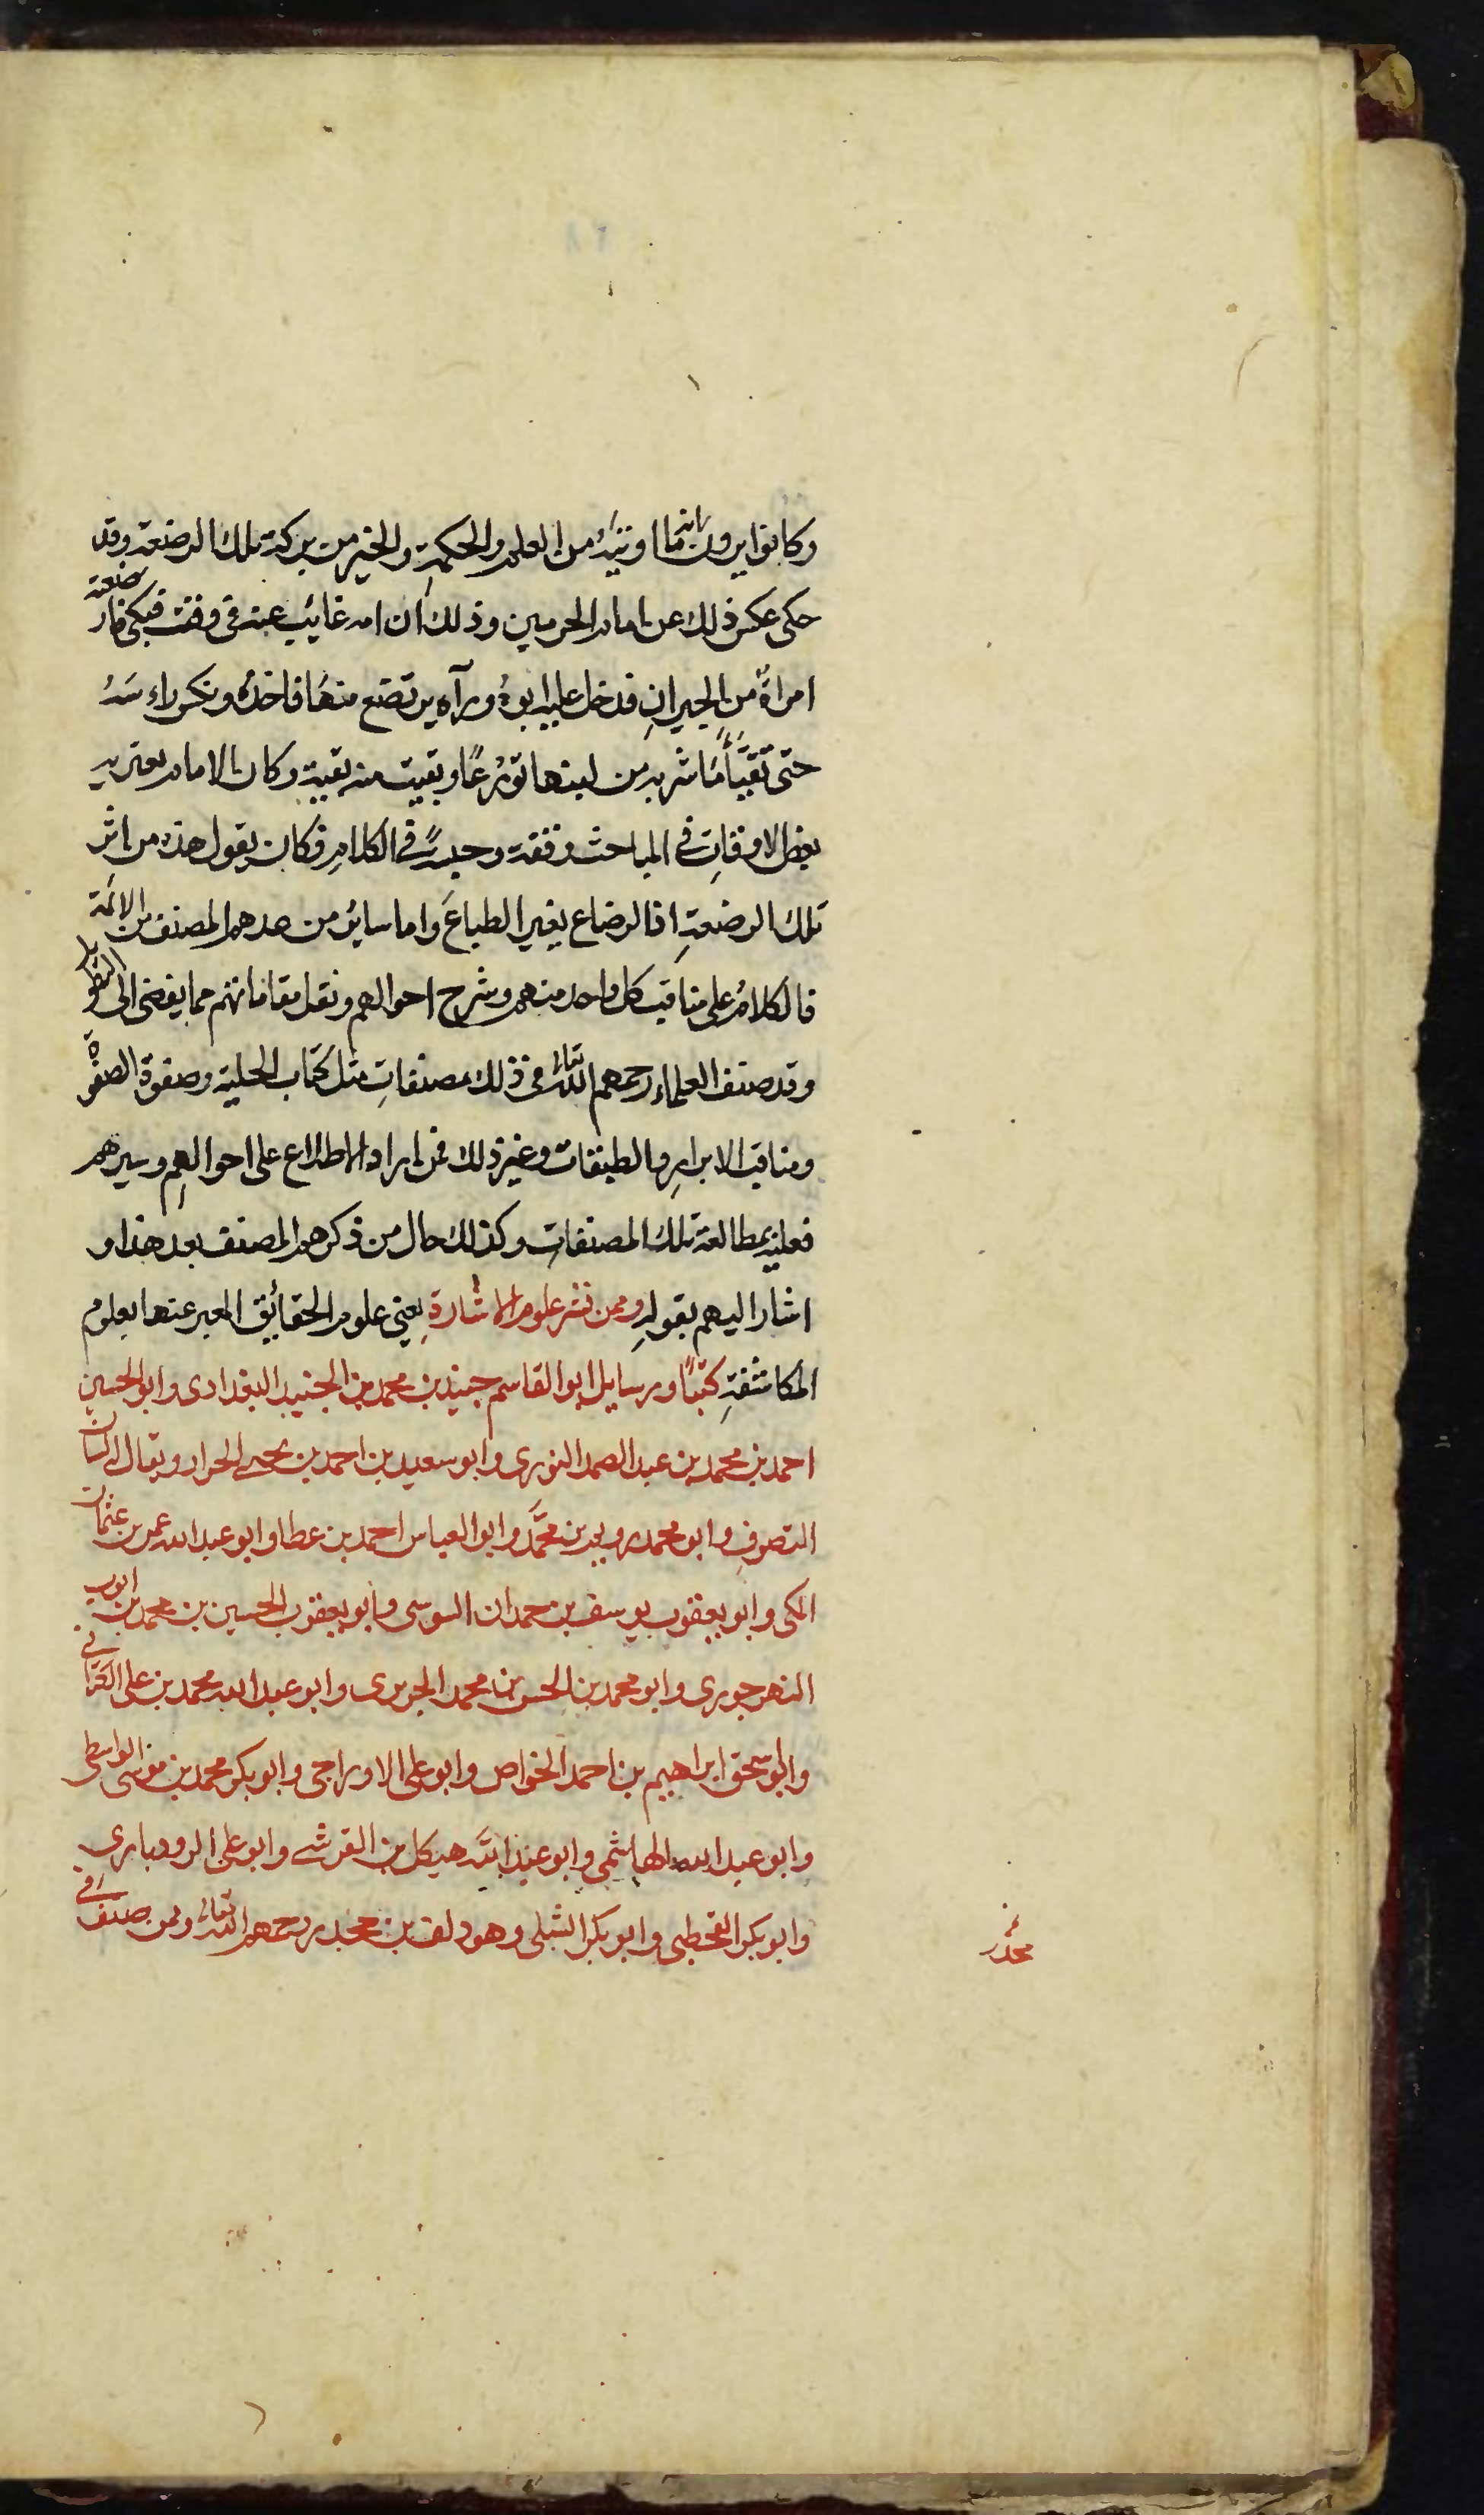 وكانوا يرون انما اوتيه من العلم والحكمة والخير من بركة تلك الرضعة وقد
حكى عكس ذلك عن امام الحرمين وذلك ان امه غايب عنه فى وقت فبكى فارضعته
امراة من الجيران فدخل عليه ابوه ورآه يرتضع منها فاخذه ونكس راسه
حتى تقيأ ما شربه من لبنها تورعًا وبقيت منه بقية وكان الامام يعتريه
بعض الاوقات فى المباحث وقفة وحبسة فى الكلام فكان يقول هذه من اثر
تلك الرضعة اذ الرضاع يغير الطباع واما ساير من عدهم المصنف من الائمة
فالكلام على مناقب كل واحد منهم وشرح احوالهم ونقل مقاماتهم مما يفضى الى التطويل
وقد صنف العلماء رحمهم الله تعالى فى ذلك مصنفات مثل كتاب الحلية وصفوة الصفوة
ومناقب الابرار والطبقات وغير ذلك فمن اراد الاطلاع على احوالهم وسيرهم
فعليه بمطالعة تلك المصنفات وكذلك حال من ذكرهم المصنف بعد هذا و
اشار اليهم بقوله وممن نشر علوم الاشارة يعنى علوم الحقائق المعبر عنها بعلوم
المكاشفة كتبًا ورسايل ابو القاسم جنيد بن محمد بن الجنيد البغدادى وابو الحسين
احمد بن محمد بن عبد الصمد النورى وابو سعيد بن احمد بن يحيى الحراز ويقال له لسان
التصوف وابو محمد رويم بن محمَّد وابو العباس احمد بن عطا وابو عبد الله عمر بن عثمان
المكى وابو يعقوب يوسف بن حمدان السوسى وابو يعقوب الحسين بن محمد بن ايوب
النهرجورى وابو محمد بن الحسن بن محمد الجريرى وابو عبد الله محمد بن على الكتانى
وابو اسحق ابراهيم بن احمد الخواص وابو على الاوراجى وابو بكر محمد بن موسى الواسطى
وابو عبد الله الهاشمى وابو عبد الله هيكل بن القرشى وابو على الرودبارى
وابو بكر القحطبى وابو بكر الشبلى وهو دلف بن جحدر رحمهم الله تعالى وممن صنف فى